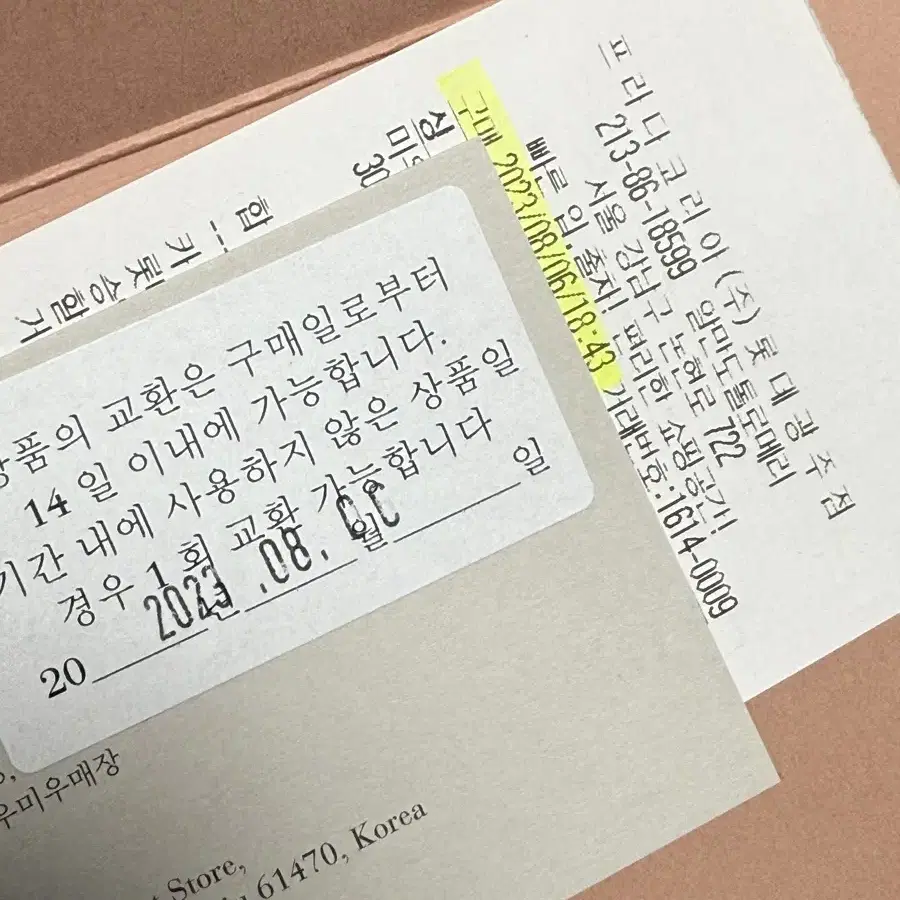 프라다코리아(주)롯데광주점
213-86-18599 알만도톨로메리
서울 강남구 논현로 722
빠른 입,출차! 편리한 쇼핑공간!
구매 2023/08/06/18:43 거래번호:1614-0009
상
미
30
합
카
롯
상품의 교환은 구매일로부터
14일 이내에 가능합니다.
기간 내에 사용하지 않은 상품일
경우 1회 교환 가능합니다
20 년 월 일
2023.08.
우미우매장
Store,
61470, Korea